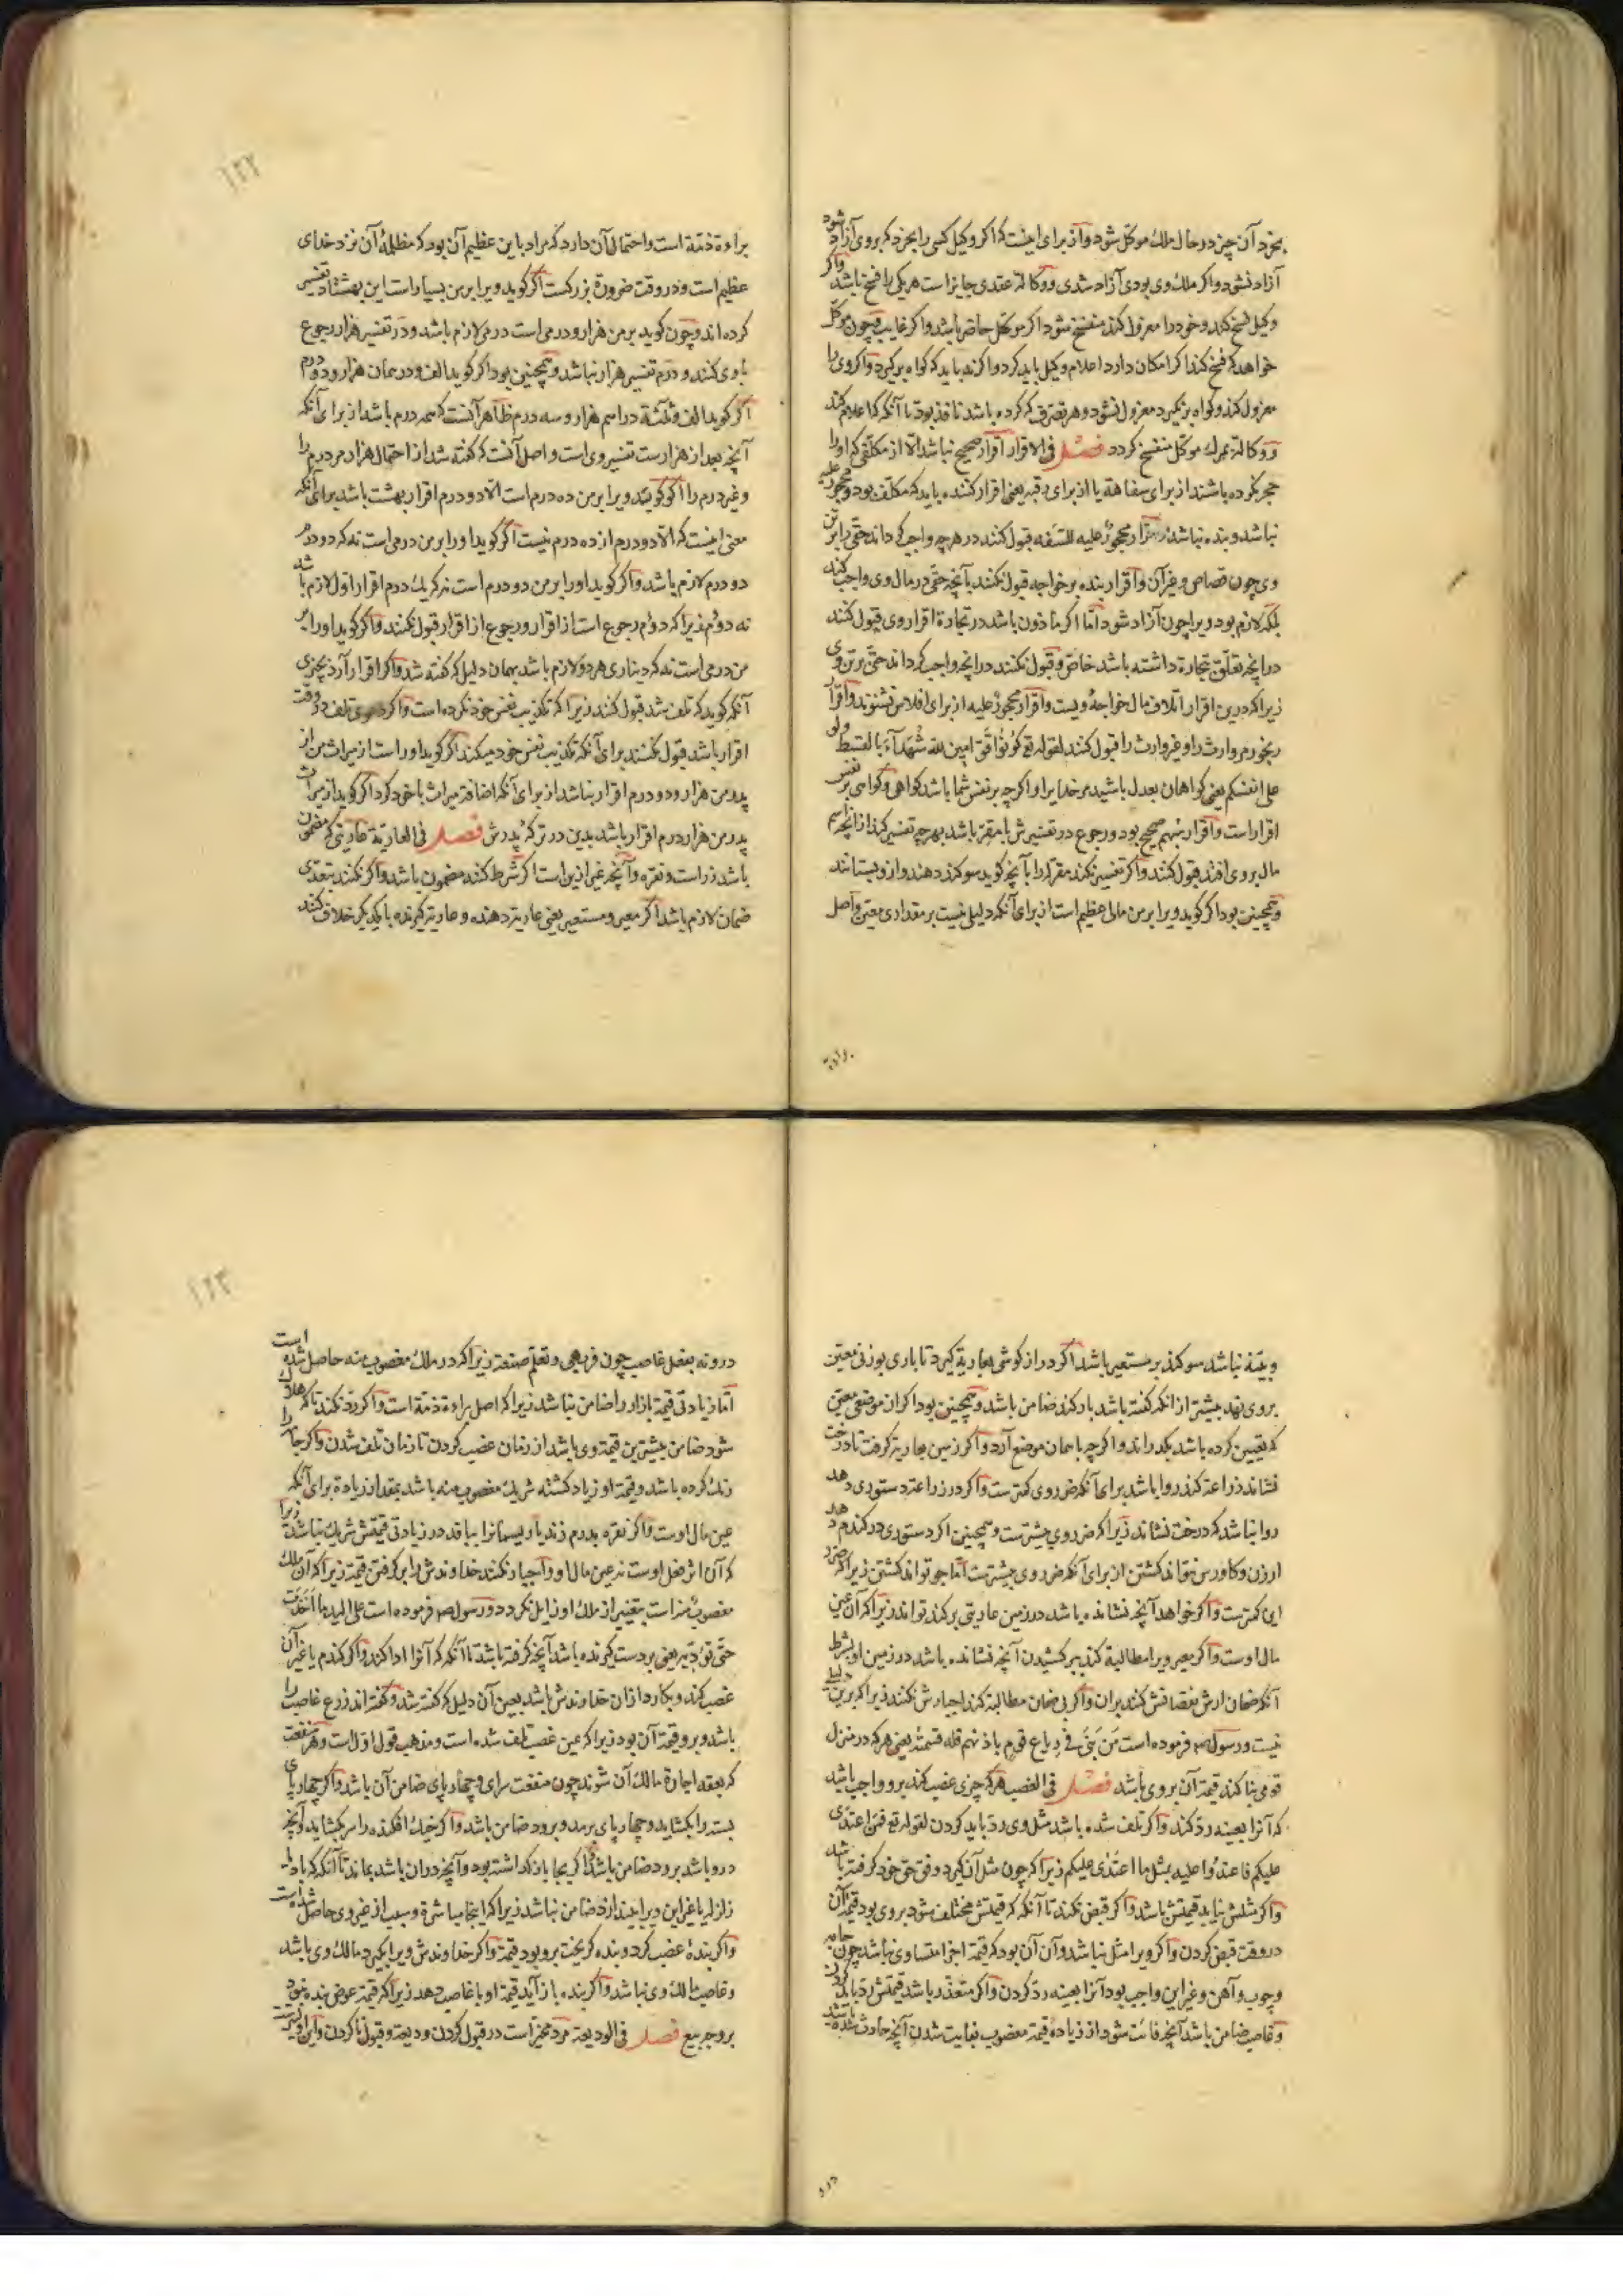 بخرد آن چیز در حال ملک موکل شود و از برای اینست که اگر وکیل کسی را بخرد که بر وی آزاد شود
آزاد نشود و اگر ملک وی بودی آزاد شدی و وکالة عقدی جایز است هر یکی را فسخ باشد و اگر
وکیل فسخ کند و خود را معزول کند منفسخ شود اگر موکل حاضر باشد و اگر غایب و چون موکل
خواهد که فسخ کند اگر امکان دارد اعلام وکیل باید کرد و اگر نه باید که گواه برگیرد و اگر وی را
معزول کند و گواه برنگیرد معزول نشود و هر تصرف که کرده باشد نافذ بود تا آنگه که اعلام کند
و وکالة بمرگ موکل منفسخ گردد فصل فی الاقرار اقرار صحیح نباشد الا از مکلفی که او را
حجر نکرده باشند از برای سفاهة یا از برای رقیه یعنی اقرار کننده باید که مکلف بود و محجور علیه
نباشد و بنده نباشد اقرار محجور علیه للسفه قبول کنند در هر چه واجب گرداند حقی را بر تن
وی چون قصاص و غیر آن و اقرار بنده بر خواجه قبول نکنند بآنچه حقی در مال وی واجب کند
بلکه لازم بود ویرا چون آزاد شود اما اگر مأذون باشد در تجارة اقرار وی قبول کنند
در آنچه تعلق بتجارة داشته باشد خاص و قبول نکنند در آنچه واجب گرداند حقی بر تن وی
زیرا که درین اقرار اتلاف مال خواجهٔ ویست و اقرار محجور علیه از برای افلاس نشنوند و اقرار
رنجور مر وارث را و غیر وارث را قبول کنند لقوله تع کونوا قوامین لله شهداء بالقسط ولو
علی انفسکم یعنی گواهان بعدل باشید مر خدایرا و اگر چه بر نفس شما باشد گواهی و گواهی بر نفس
اقرار است و اقرار مبهم صحیح بود و رجوع در تفسیرش با مقر باشد بهر چه تفسیر کند از آنچه اسم
مال بر وی افتد قبول کنند و اگر تفسیر نکند مقر له را بآنچه گوید سوگند دهند و ازو بستانند
و همچنین بود اگر گوید ویرا بر من مالی عظیم است از برای آنکه دلیل نیست بر مقداری معین و اصل
براءة
۱۲۲
براءة ذمة است و احتمال آن دارد که مراد باین عظیم آن بود که مظلمهٔ آن نزد خدای
عظیم است و در وقت ضرورة بزرگست اگر گوید ویرا بر من بسیار است این بهشتاد تفسیر
کرده‌اند و چون گوید بر من هزار و درمی است درمی لازم باشد و در تفسیر هزار رجوع
با وی کنند و درم تفسیر هزار نباشد و همچنین بود اگر گوید الف و درهمان هزار و دو درم
اگر گوید الف و ثلثة دراهم هزار و سه درم ظاهر آنست که سه درم باشد از برای آنکه
آنچه بعد از هزارست تفسیر وی است و اصل آنست که گفته شد از احتمال هزار مر درم را
و غیر درم را اگر گویند ویرا بر من ده درم است الا دو درم اقرار بهشت باشد برای آنکه
معنی اینست که الا دو درم از ده درم نیست اگر گوید او را بر من درمی است نه که دو درم
دو درم لازم باشد و اگر گوید او را بر من دو درم است نه که یک درم اقرار اول لازم باشد
نه دوم زیرا که دوم رجوع است از اقرار و رجوع از اقرار قبول نکنند و اگر گوید او را بر
من درمی است نه که دیناری هر دو لازم باشد بهمان دلیل که گفته شد و اگر اقرار آرد بچیزی
آنگه گوید که تلف شد قبول کنند زیرا که تکذیب نفس خود نکرده است و اگر دعوی تلف در وقت
اقرار باشد قبول نکنند برای آنکه تکذیب نفس خود میکند اگر گوید او راست از میراث من از
پدر من هزار و دو درم اقرار نباشد از برای آنکه اضافة میراث با خود کرد اگر گوید از میراث
پدر من هزار درم اقرار باشد بدین در ترکهٔ پدرش فصل فی العاریة عاریتی که مضمون
باشد زر است و نقره و آنچه غیر ازین است اگر شرط کند مضمون باشد و اگر نکند بتعدی
ضمان لازم باشد اگر معیر و مستعیر یعنی عاریة دهنده و عاریة گیرنده با یکدیگر خلاف کنند
و بینه نباشد سوگند بر مستعیر باشد اگر درازگوشی بعاریة گیرد تا باری بوزنی معین
بر وی نهد بیشتر از آنکه گفته باشد بار کند ضامن باشد و همچنین بود اگر از موضعی معین
که تعیین کرده باشد بگذراند و اگر چه با همان موضع آرد و اگر زمین بعاریة گرفت تا درخت
نشاند زراعة کند روا باشد برای آنکه ضرر وی کمترست و اگر در زراعة دستوری دهد
روا نباشد که درخت نشاند زیرا که ضرر وی بیشترست و همچنین اگر دستوری در گندم دهد
ارزن و کاورس نتواند کشتن از برای آنکه ضرر وی بیشترست اما جو تواند کشتن زیرا که ضرر
این کمترست و اگر خواهد آنچه نشانده باشد در زمین عاریتی برکند تواند زیرا که آن عین
مال اوست و اگر معیر ویرا مطالبة کند ببرکشیدن آنچه نشانده باشد در زمین او بشرط
آنکه ضمان ارش نقصانش کند بر آن و اگر بی ضمان مطالبة کند اجبارش نکنند زیرا که برین دلیل
نیست و رسول ص فرموده است من بنی فی رباع قوم باذنهم فله قیمته یعنی هر که در منزل
قومی بنا کند قیمة آن بر وی باشد فصل فی الغصب هر که چیزی غصب کند بر وی واجب باشد
که آنرا بعینه رد کند و اگر تلف شده باشد مثل وی رد باید کردن لقوله تع فمن اعتدی
علیکم فاعتدوا علیه بمثل ما اعتدی علیکم زیرا که چون مثل آن گیرد وفق حق خود گرفته باشد
و اگر مثلش نیابد قیمتش باشد و اگر قبض نکند تا آنگه که قیمتش مختلف شود بر وی بود قیمة آن
در وقت قبض کردن و اگر ویرا مثل نباشد و آن آن بود که قیمة اجزا متساوی نباشد چون جامه
و چوب و آهن و غیر این واجب بود آنرا بعینه رد کردن و اگر متعذر باشد قیمتش رد باید کردن
و غاصب ضامن باشد آنچه فائت شود از زیادهٔ قیمة مغصوب بفایت شدن آنچه حادث شده باشد
درو
۱۲۳
درو نه بفعل غاصب چون فربهی و تعلم صنعة زیرا که در ملک مغصوب منه حاصل شده است
اما زیادتی قیمة بازار را ضامن نباشد زیرا که اصل براءة ذمة است و اگر رد نکند تا که هلاک
شود ضامن بیشترین قیمة وی باشد از زمان غصب کردن تا زمان تلف شدن و اگر جامه را
رنگ کرده باشد و قیمة او زیاد گشته شریک مغصوب منه باشد بمقدار زیادة برای آنکه
عین مال اوست و اگر نقره بدرم زند یا ریسمانرا ببافد در زیادتی قیمتش شریک نباشد زیرا
که آن اثر فعل اوست نه عین مال او و اجبار نکنند خداوندش را بر گرفتن قیمة زیرا که آن ملک
مغصوب منه است بتغییر از ملک او زایل نگردد و رسول ص فرموده است علی الید ما اخذت
حتی تؤدیه یعنی بر دست گیرنده باشد آنچه گرفته باشد تا آنگه که آنرا ادا کند و اگر گندم یا غیر آن
غصب کند و بکارد از آن خداوندش باشد بعین آن دلیل که گفته شد و گفته‌اند زرع غاصب را
باشد و برو قیمة آن بود زیرا که عین غصب تلف شده است و مذهب قول اول است و هر منفعت
که بعقد اجارة مالک آن شوند چون منفعت سرای و چهارپای ضامن آن باشد و اگر چهارپای
بسته را بگشاید و چهارپای برمد و برود ضامن باشد و اگر خیک افکنده را سر بگشاید و آنچه
درو باشد برود ضامن باشد و اگر بجا باز گذاشته بود و آنچه در آن باشد بماند تا آنگه که باد یا
زلزله یا غیر این ویرا بیندازد ضامن نباشد زیرا که اینجا مباشرة و سبب از غیر وی حاصل شده است
و اگر بندهٔ غصب کرد و بنده گریخت برو بود قیمة و اگر خداوندش ویرا بگیرد مالک وی باشد
و غاصب مالک وی نباشد و اگر بنده باز آید قیمة او با غاصب دهد زیرا که قیمة عوض بنده نبود
بر وجه بیع فصل فی الودیعة مرد مخیر است در قبول کردن ودیعة و قبول ناکردن و این